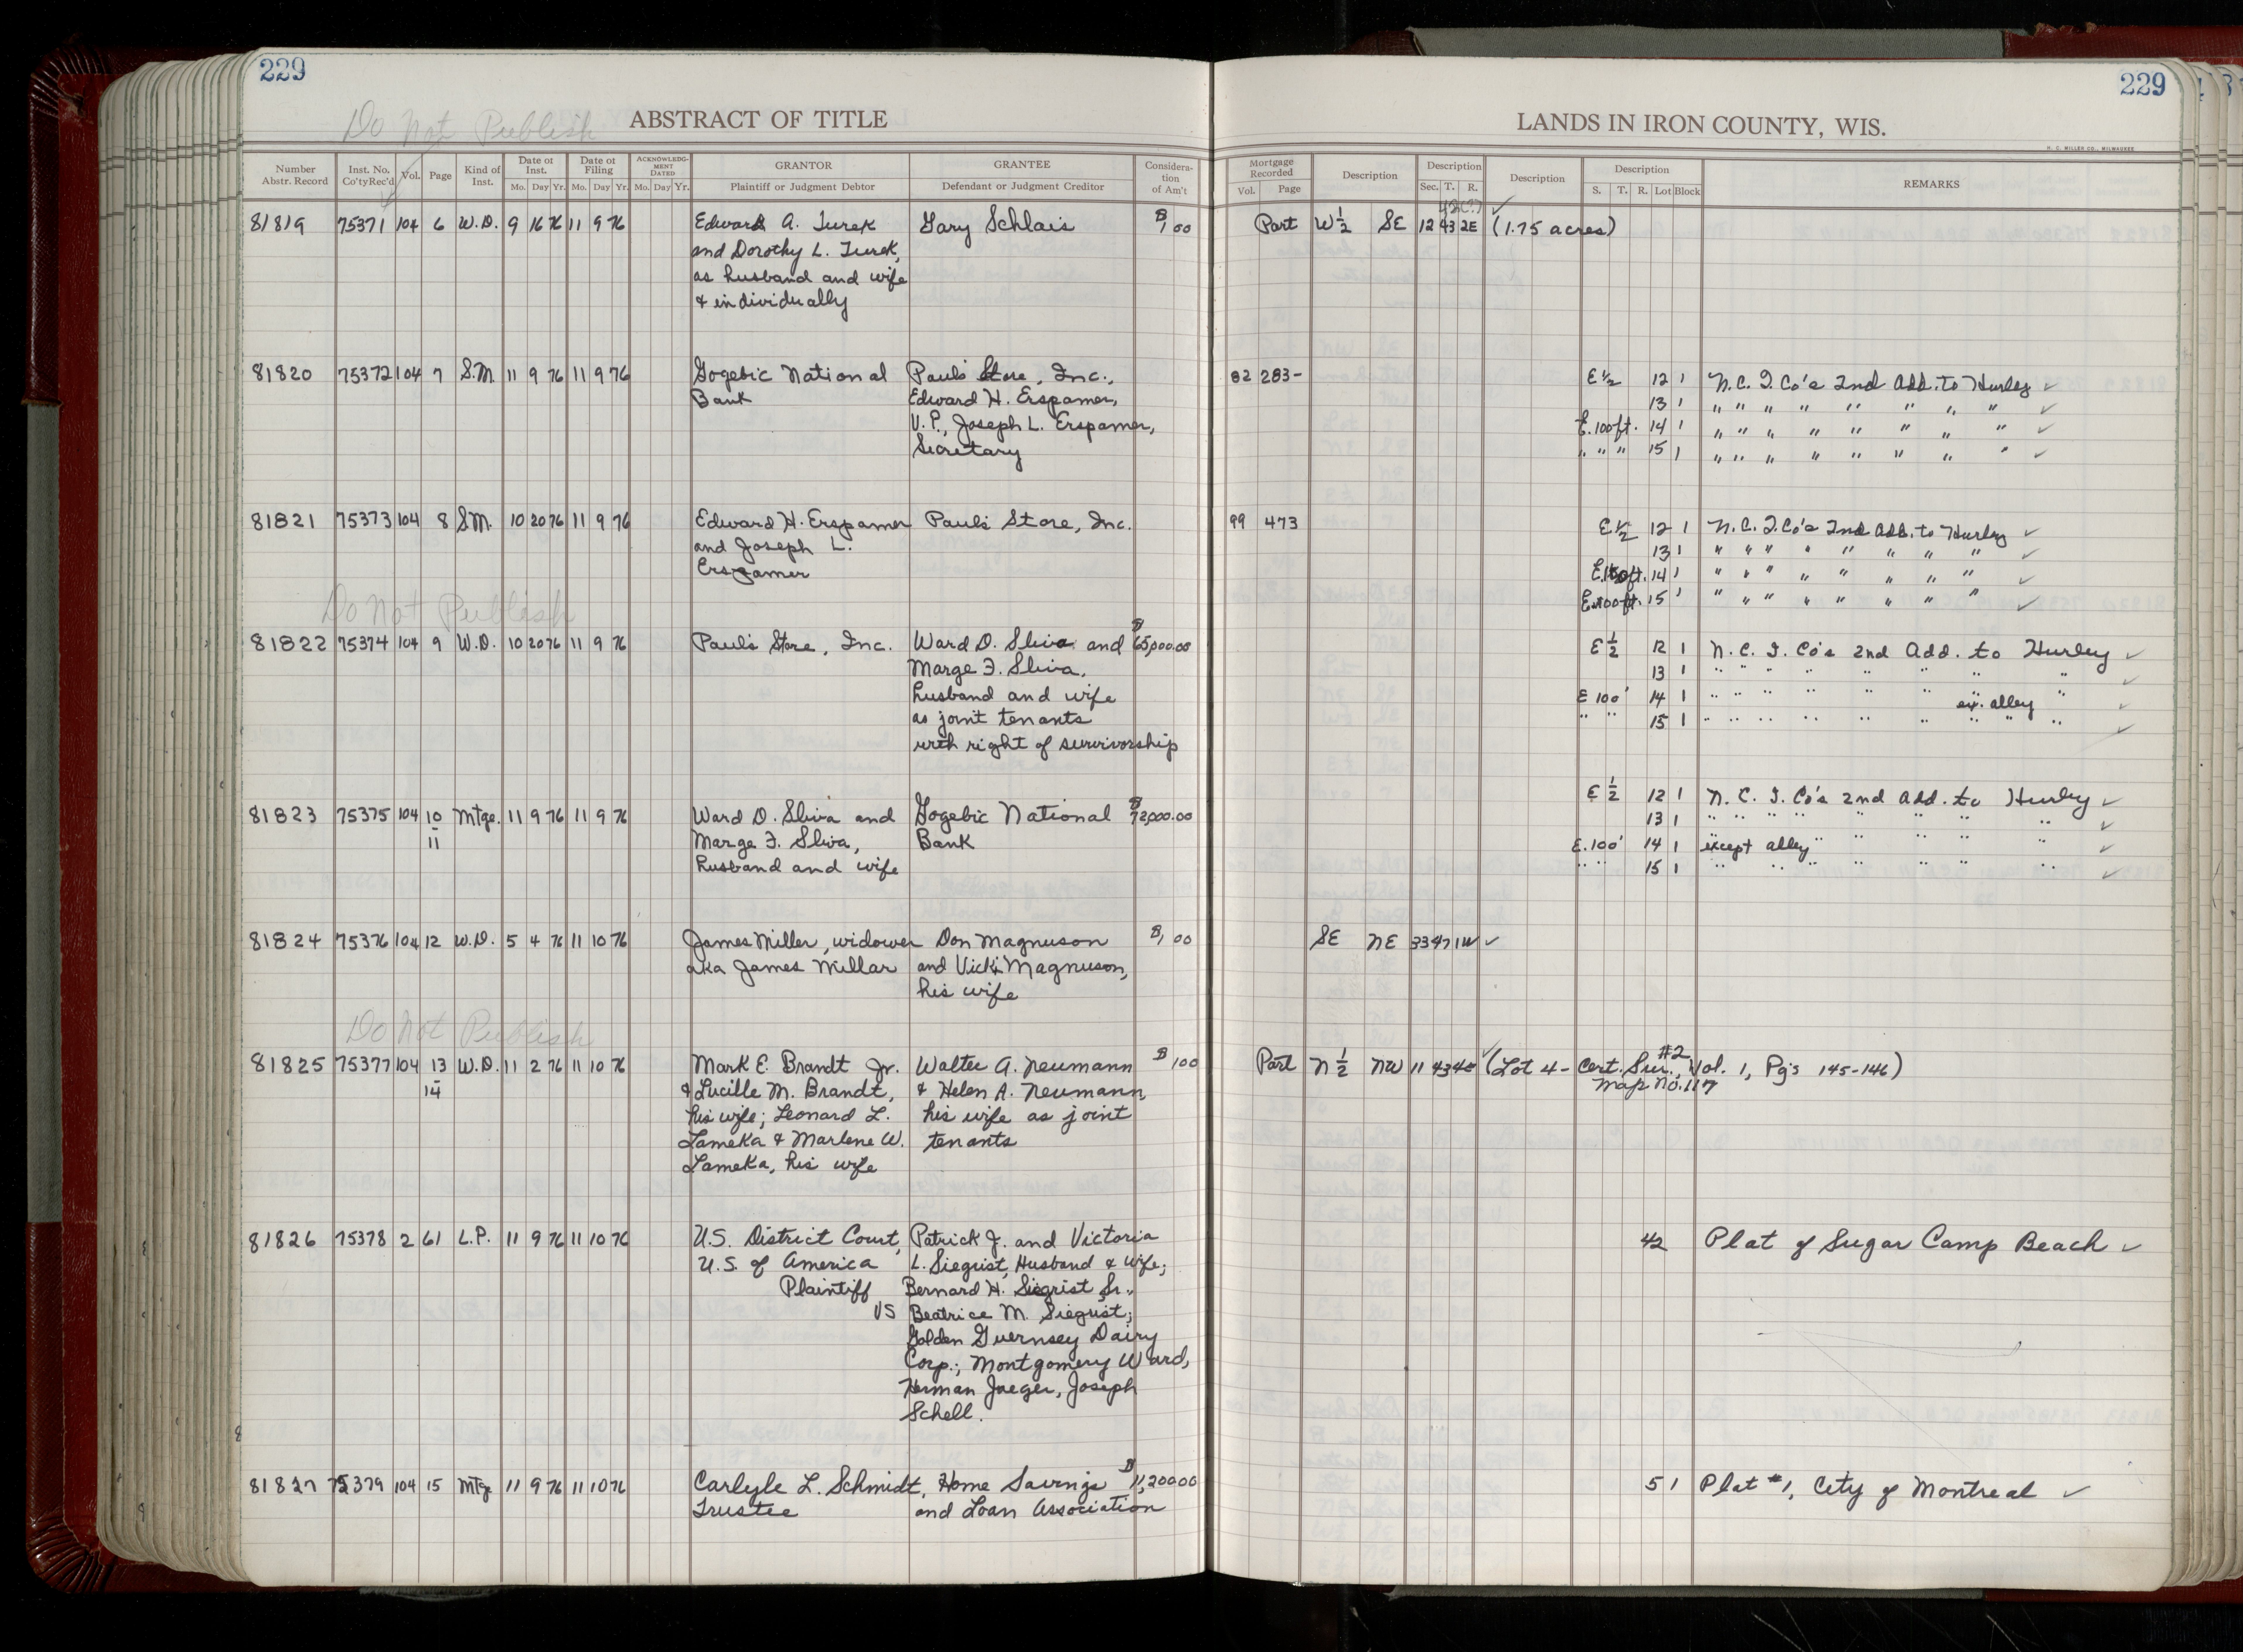 229
229
Do Not Publish
ABSTRACT OF TITLE
LANDS IN IRON COUNTY, WIS.
H. C. MILLER CO., MILWAUKEE
Number Abstr. Record
Inst. No. Co'tyRec'd
Vol.
Page
Kind of Inst.
Date of Inst.
Mo. Day Yr.
Date of Filing
Mo. Day Yr.
ACKNOWLEDGMENT DATED
Mo. Day Yr.
GRANTOR
Plaintiff or Judgment Debtor
GRANTEE
Defendant or Judgment Creditor
Considera-
tion
of Am't
Mortgage Recorded
Vol. Page
Description
Description
Sec. T. R.
Description
Description
S. T. R. Lot Block
REMARKS
42(?) ✓
81819 75371 104 6 W.D. 9 16 76 11 9 76 Edward A. Turek Gary Schlais $1 00 Part W 1/2 SE 12 43 2E (1.75 acres)
and Dorothy L. Turek,
as husband and wife
& individually
81820 75372 104 7 S.M. 11 9 76 11 9 76 Gogebic National Paul's Store, Inc., 82 283- E 1/2 12 1 N.C.I.Co's 2nd Add. to Hurley ✓
Bank Edward H. Erspamer, 13 1 " " " " " " " " ✓
V.P., Joseph L. Erspamer, E.100ft. 14 1 " " " " " " " " ✓
Secretary " " " 15 1 " " " " " " " " ✓
81821 75373 104 8 S.M. 10 20 76 11 9 76 Edward H. Erspamer Paul's Store, Inc. 99 473 E 1/2 12 1 N.C.I.Co's 2nd Add. to Hurley ✓
and Joseph L. 13 1 " " " " " " " " ✓
Erspamer E.100ft. 14 1 " " " " " " " " ✓
E.100ft. 15 1 " " " " " " " " ✓
Do Not Publish
81822 75374 104 9 W.D. 10 20 76 11 9 76 Paul's Store, Inc. Ward D. Sliva and $65,000.00 E 1/2 12 1 N.C.I.Co's 2nd Add. to Hurley ✓
Marge F. Sliva, 13 1 " " " " " " " " ✓
husband and wife E 100' 14 1 " " " " " " ex. alley " ✓
as joint tenants " " 15 1 " " " " " " " " " ✓
with right of survivorship
81823 75375 104 10-11 Mtge. 11 9 76 11 9 76 Ward D. Sliva and Gogebic National $72,000.00 E 1/2 12 1 N.C.I.Co's 2nd Add. to Hurley ✓
Marge F. Sliva, Bank 13 1 " " " " " " " " ✓
husband and wife E.100' 14 1 except alley " " " " " ✓
" " 15 1 " " " " " " " ✓
81824 75376 104 12 W.D. 5 4 76 11 10 76 James Miller, widower Don Magnuson $1 00 SE NE 33 47 1W ✓
aka James Millar and Vicki Magnuson,
his wife
Do Not Publish
81825 75377 104 13-14 W.D. 11 2 76 11 10 76 Mark E. Brandt Jr. Walter A. Neumann $ 100 Part N 1/2 NW 11 43 4E ✓ (Lot 4 - Cert. Sur. #2, Vol. 1, Pg's 145-146)
Map No. 117
& Lucille M. Brandt, & Helen A. Neumann,
his wife; Leonard L. his wife as joint
Lameka & Marlene W. tenants
Lameka, his wife
81826 75378 2 61 L.P. 11 9 76 11 10 76 U.S. District Court, Patrick J. and Victoria 42 Plat of Sugar Camp Beach ✓
U.S. of America L. Siegrist, Husband & wife;
Plaintiff Bernard H. Siegrist Sr.,
VS Beatrice M. Siegrist;
Golden Guernsey Dairy
Corp.; Montgomery Ward,
Herman Jaeger, Joseph
Schell.
81827 75379 104 15 Mtge 11 9 76 11 10 76 Carlyle L. Schmidt, Home Savings $11,200.00 5 1 Plat #1, City of Montreal ✓
Trustee and Loan Association